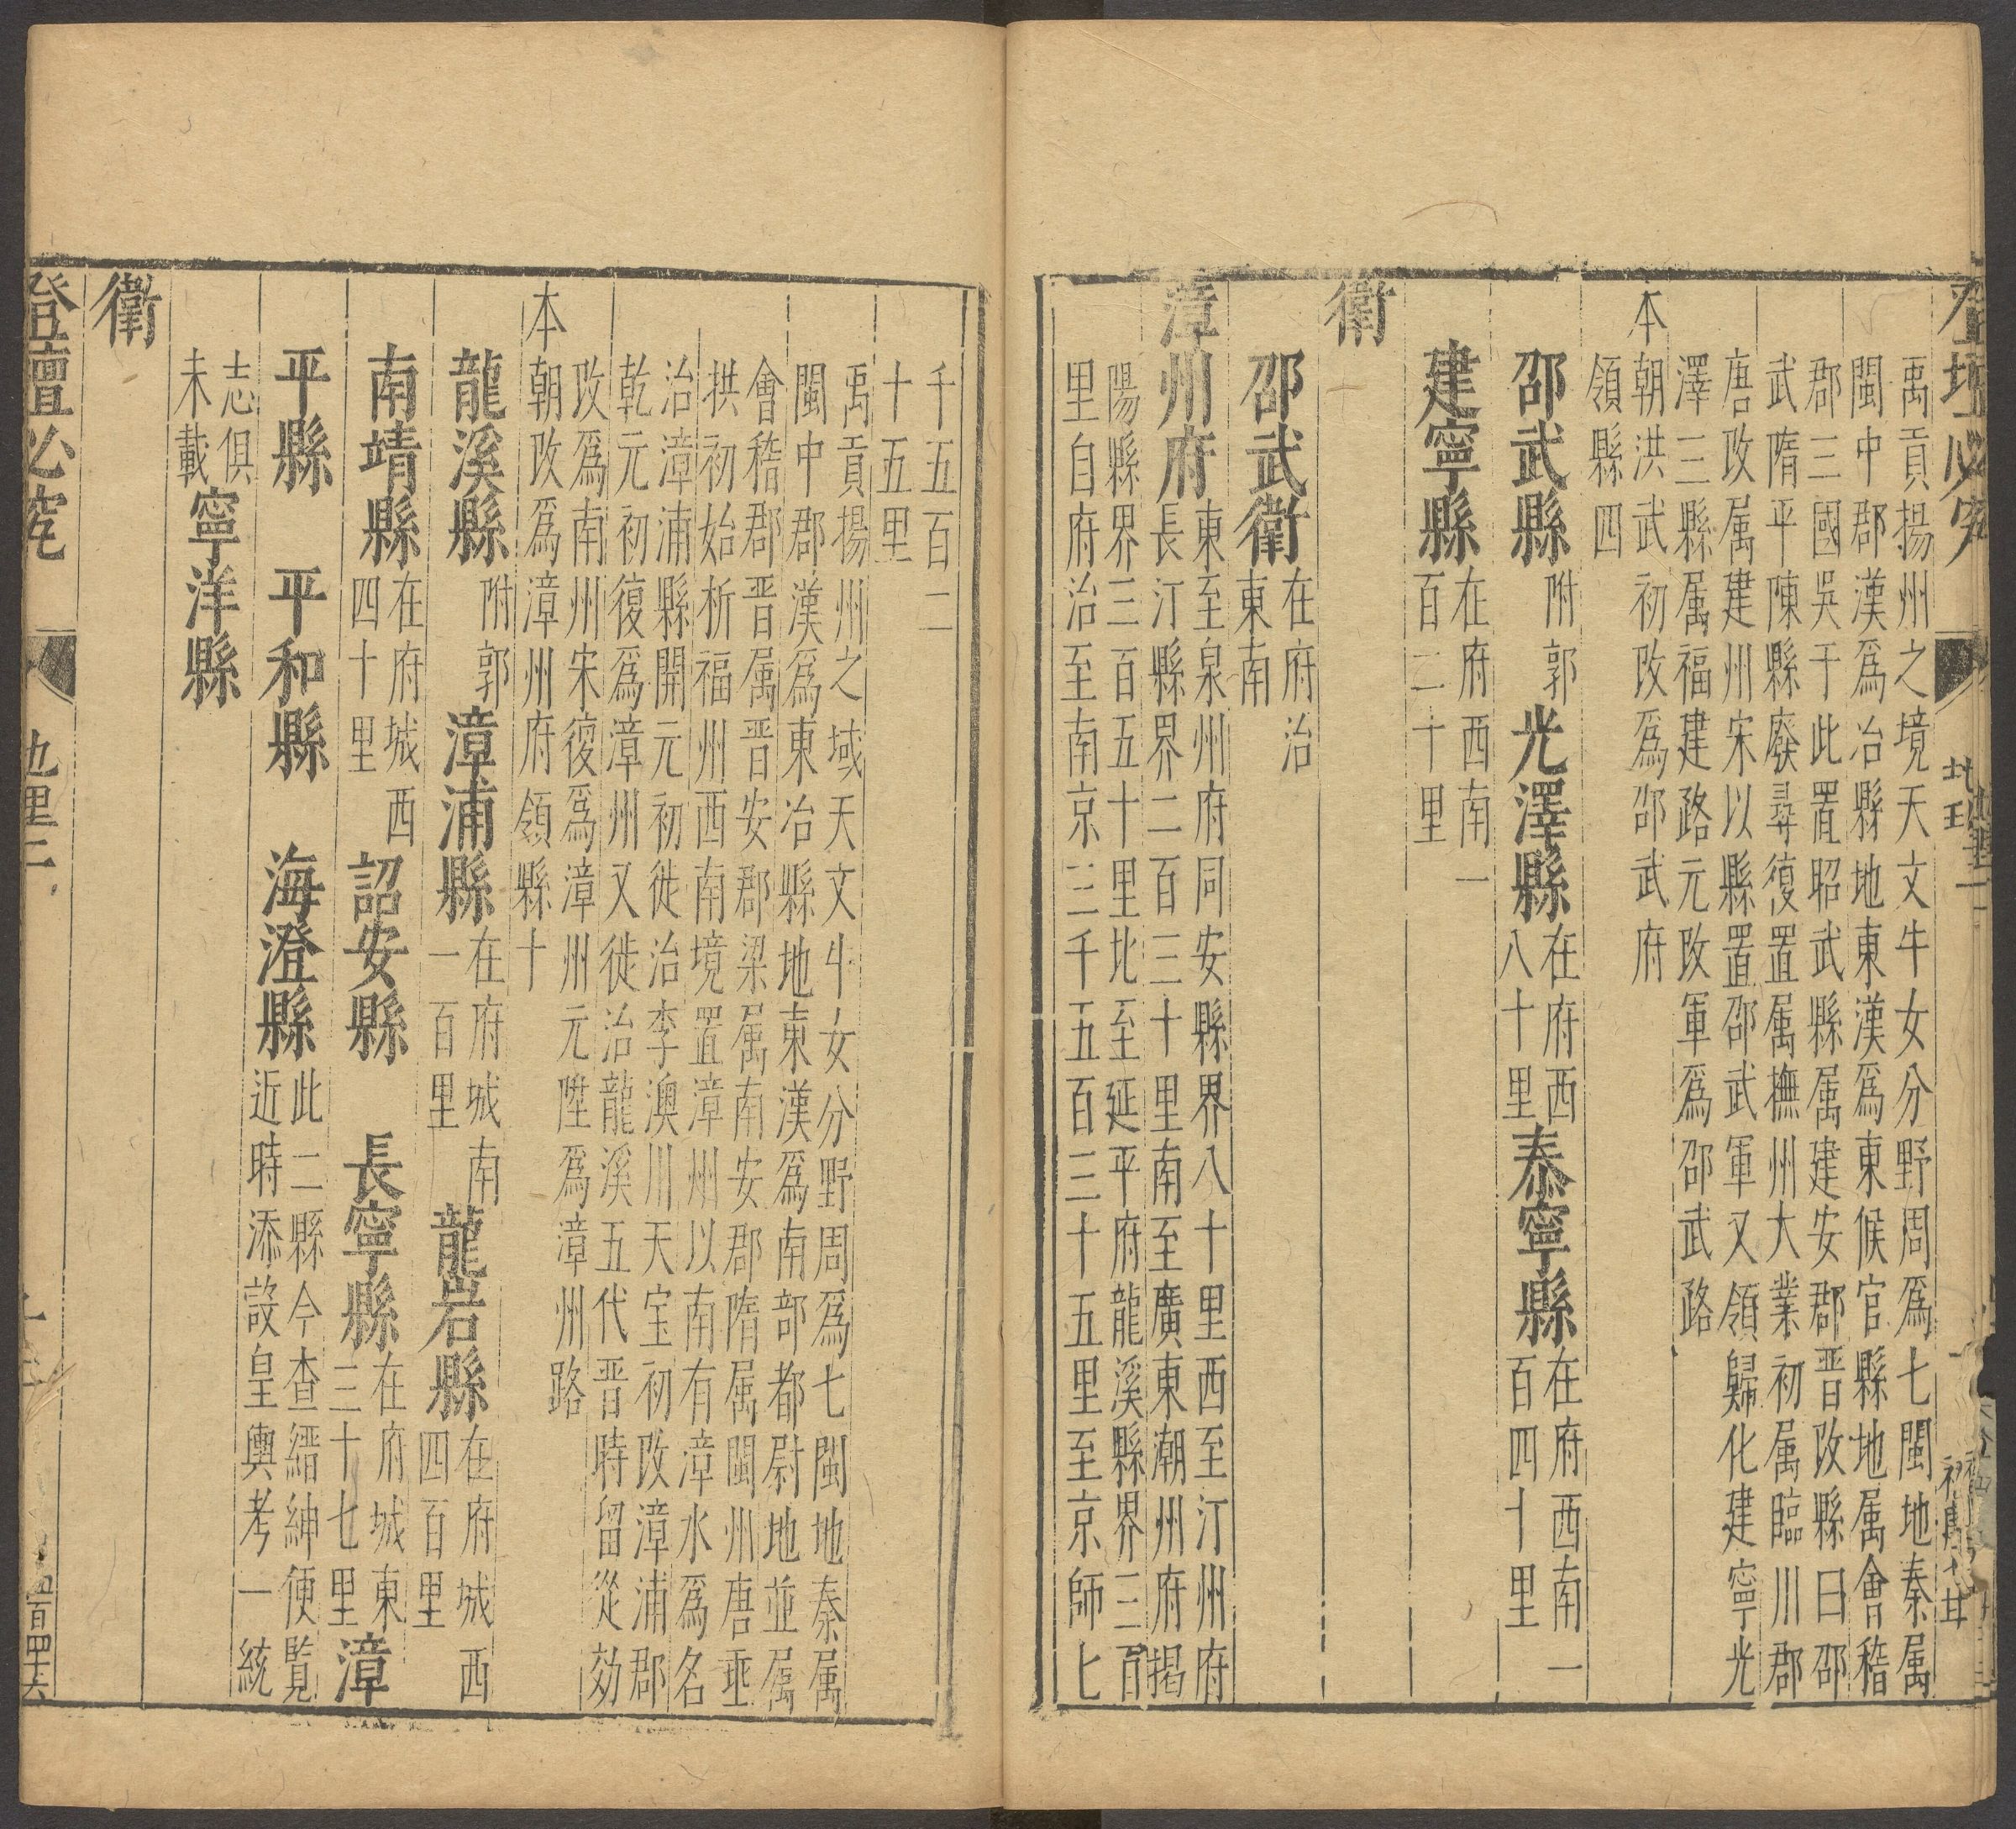 禹貢揚州之境天文牛女分野周爲七閩地秦属
閩中郡漢爲冶縣地東漢爲東候官縣地属會稽
郡三國吳于此置昭武縣属建安郡晋改縣曰邵
武隋平陳縣廢尋復置属撫州大業初属臨川郡
唐改属建州宋以縣置邵武軍又領歸化建寧光
澤三縣属福建路元改軍爲邵武路
本朝洪武初改爲邵武府
領縣四
邵武縣附郭光澤縣在府西八十里泰寧縣在府西南一百四十里
建寧縣在府西南一百二十里
衛
邵武衛在府治東南
漳州府東至泉州府同安縣界八十里西至汀州府
長汀縣界二百三十里南至廣東潮州府揭
陽縣界三百五十里北至延平府龍溪縣界三百
里自府治至南京三千五百三十五里至京師七
千五百二
十五里
禹貢揚州之域天文牛女分野周爲七閩地秦属
閩中郡漢爲東冶縣地東漢爲南部都尉地並属
會稽郡晋属晋安郡梁属南安郡隋属閩州唐埀
拱初始析福州西南境置漳州以南有漳水爲名
治漳浦縣開元初徙治李澳川天宝初改漳浦郡
乾元初復爲漳州又徙治龍溪五代晋時留從効
改爲南州宋復爲漳州元陞爲漳州路
本朝改爲漳州府領縣十
龍溪縣附郭漳浦縣在府城南一百里龍岩縣在府城西四百里
南靖縣在府城西四十里詔安縣 長寧縣在府城東三十七里漳
平縣 平和縣 海澄縣此二縣今查縉紳便覽近時添設皇輿考一統
志俱未載寧洋縣
衛
登壇必究
地里二